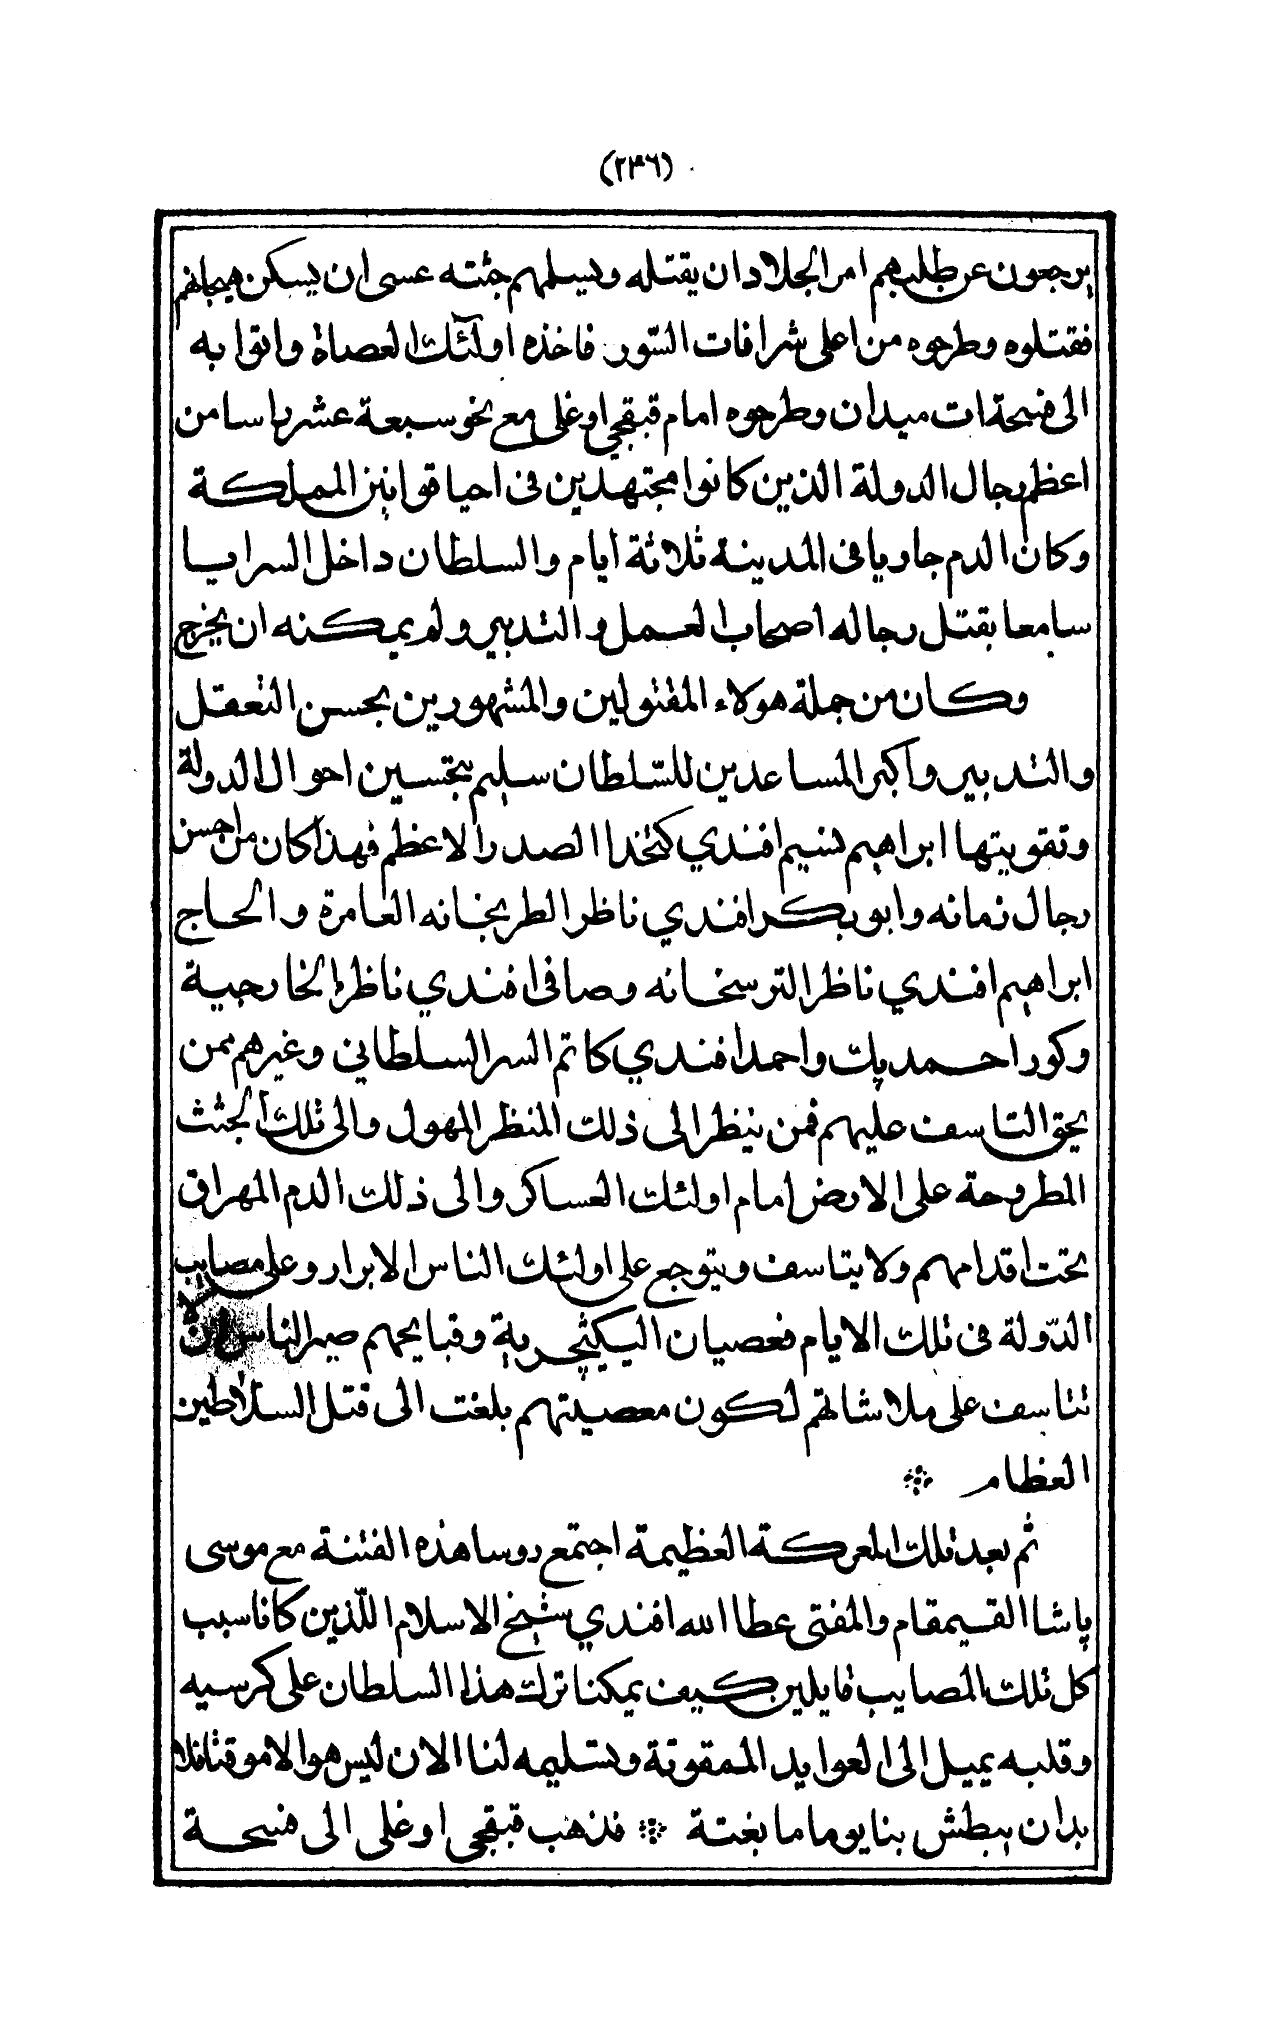 (٢٣٦)
يرجعون عن طلبهم امر الجلاد ان يقتله ويسلمهم جثته عسى ان يسكن هيجانهم
فقتلوه وطرحوه من اعلى شرافات السّور فاخذه اولئك العصاة واتوا به
الى فسحة ات ميدان وطرحوه امام قبقجي اوغلى مع نحو سبعة عشر راسا من
اعظم رجال الدولة الذين كانوا مجتهدين فى احيا قوانين المملكة
وكان الدم جاريا فى المدينة ثلاثة ايام والسلطان داخل السرايا
سامعا بقتل رجاله اصحاب العمل والتدبير ولم يمكنه ان يخرج
وكان من جملة هولاء المقتولين والمشهورين بحسن التعقل
والتدبير واكبر المساعدين للسّلطان سليم بتحسين احوال الدولة
وتقويتها ابراهيم نسيم افندي كتخدا الصدر الاعظم فهذا كان من احسن
رجال زمانه وابو بكر افندي ناظر الطربخانه العامرة والحاج
ابراهيم افندي ناظر الترسخانه وصافى افندي ناظر الخارجية
وكور احمد بك واحمد افندي كاتم السر السلطاني وغيرهم ممن
يحق التاسف عليهم فمن ينظر الى ذلك المنظر المهول والى تلك الجثث
المطروحة على الارض امام اولئك العساكر والى ذلك الدم المهراق
تحت اقدامهم ولا يتاسف ويتوجع على اولئك الناس الابرار وعلى مصايب
الدّولة فى تلك الايام فعصيان اليكيچرية وقبايحهم صير الناس ان لا
تتاسف على ملاشاتهم لكون معصيتهم بلغت الى قتل السلاطين
العظام ※
ثم بعد تلك المعركة العظيمة اجتمع روسا هذه الفتنة مع موسى
پاشا القيمقام والمفتى عطا الله افندي شيخ الاسلام اللّذين كانا سبب
كل تلك المصايب قايلين كيف يمكنا ترك هذا السلطان على كرسيه
وقلبه يميل الى العوايد الممقوتة وتسليمه لنا الان ليس هو الا موقتا فلا
بد ان يبطش بنا يوما ما بغتة ※ فذهب قبقجى اوغلى الى فسحة